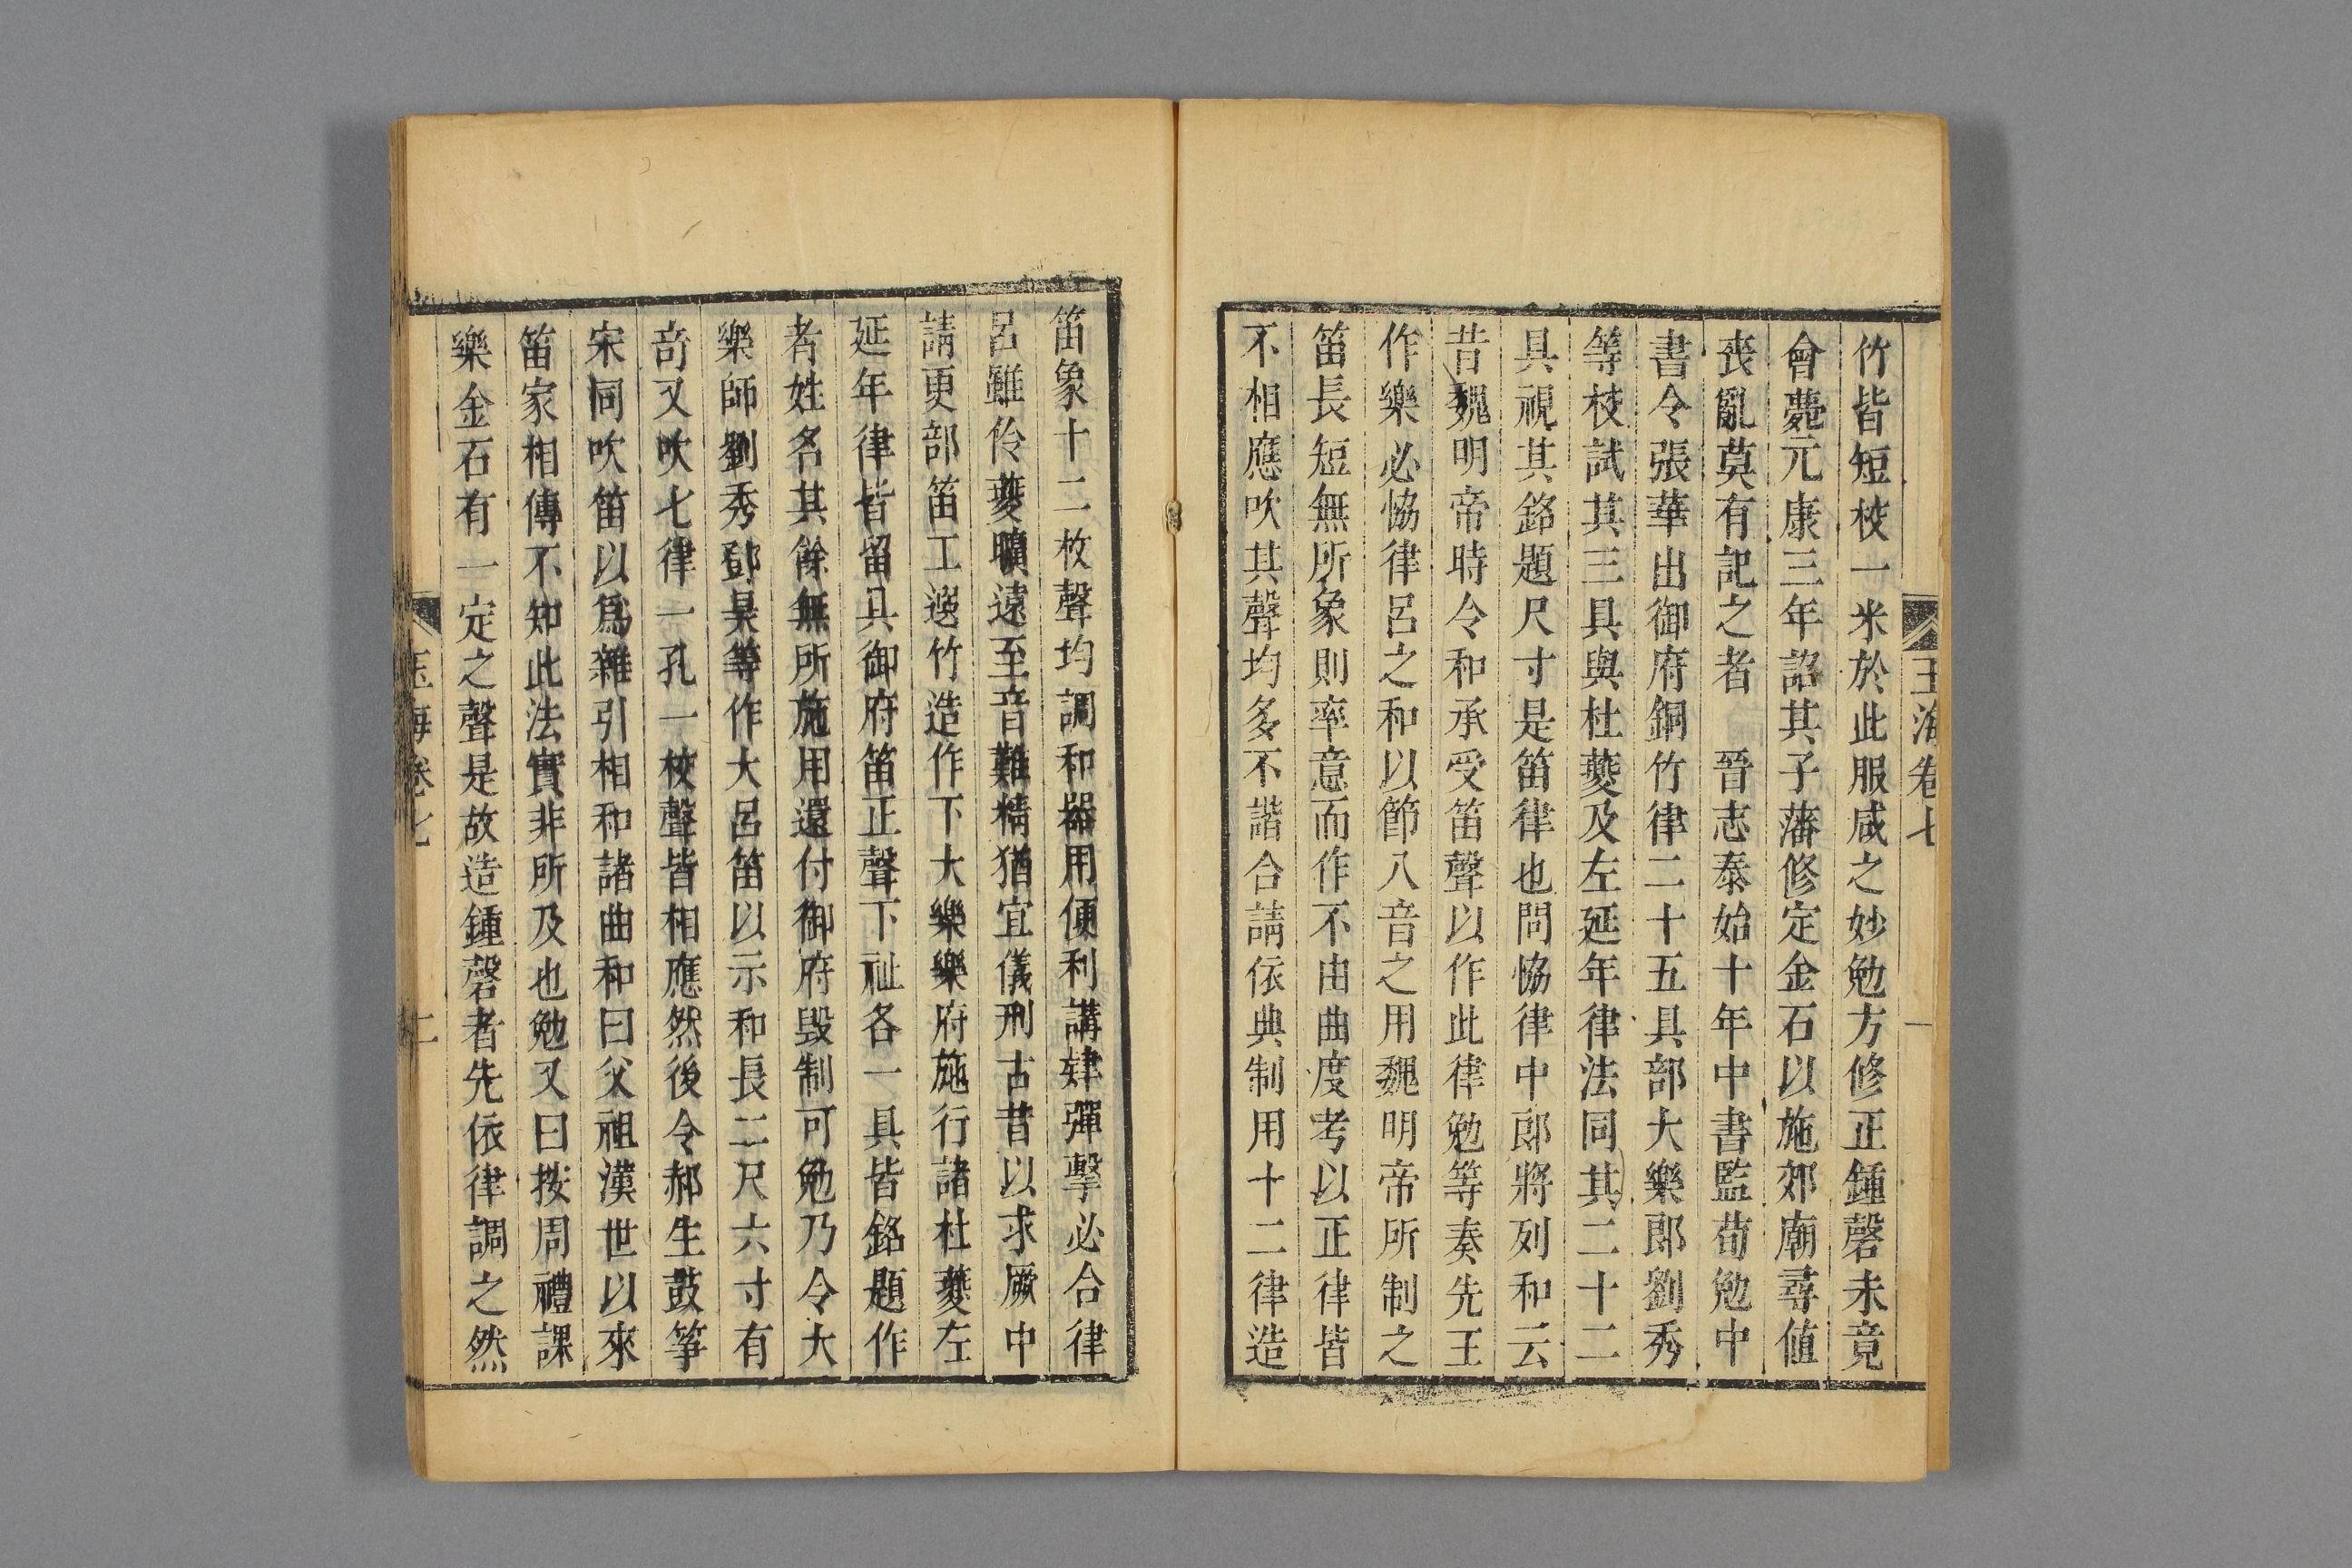 玉海卷七 一
竹皆短校一米於此服咸之妙勉方修正鍾磬未竟
會薨元康三年詔其子藩修定金石以施郊廟尋值
喪亂莫有記之者 晉志泰始十年中書監荀勉中
書令張華出御府銅竹律二十五具部大樂郎劉秀
等校試其三具與杜夔及左延年律法同其二十二
具視其銘題尺寸是笛律也問協律中郎將列和云
昔魏明帝時令和承受笛聲以作此律勉等奏先王
作樂必恊律呂之和以節八音之用魏明帝所制之
笛長短無所象則率意而作不由曲度考以正律皆
不相應吹其聲均多不諧合請依典制用十二律造
笛象十二枚聲均調和器用便利講肄彈擊必合律
呂雖伶夔曠遠至音難精猶宜儀刑古昔以求厥中
請更部笛工選竹造作下大樂樂府施行諸杜夔左
延年律皆留具御府笛正聲下祉各一具皆銘題作
者姓名其餘無所施用還付御府毀制可勉乃令大
樂師劉秀鄧昊等作大呂笛以示和長二尺六寸有
奇又吹七律一孔一校聲皆相應然後令郝生鼓箏
宋同吹笛以爲雜引相和諸曲和曰父祖漢世以來
笛家相傳不知此法實非所及也勉又曰按周禮課
樂金石有一定之聲是故造鍾磬者先依律調之然
玉海卷七 二